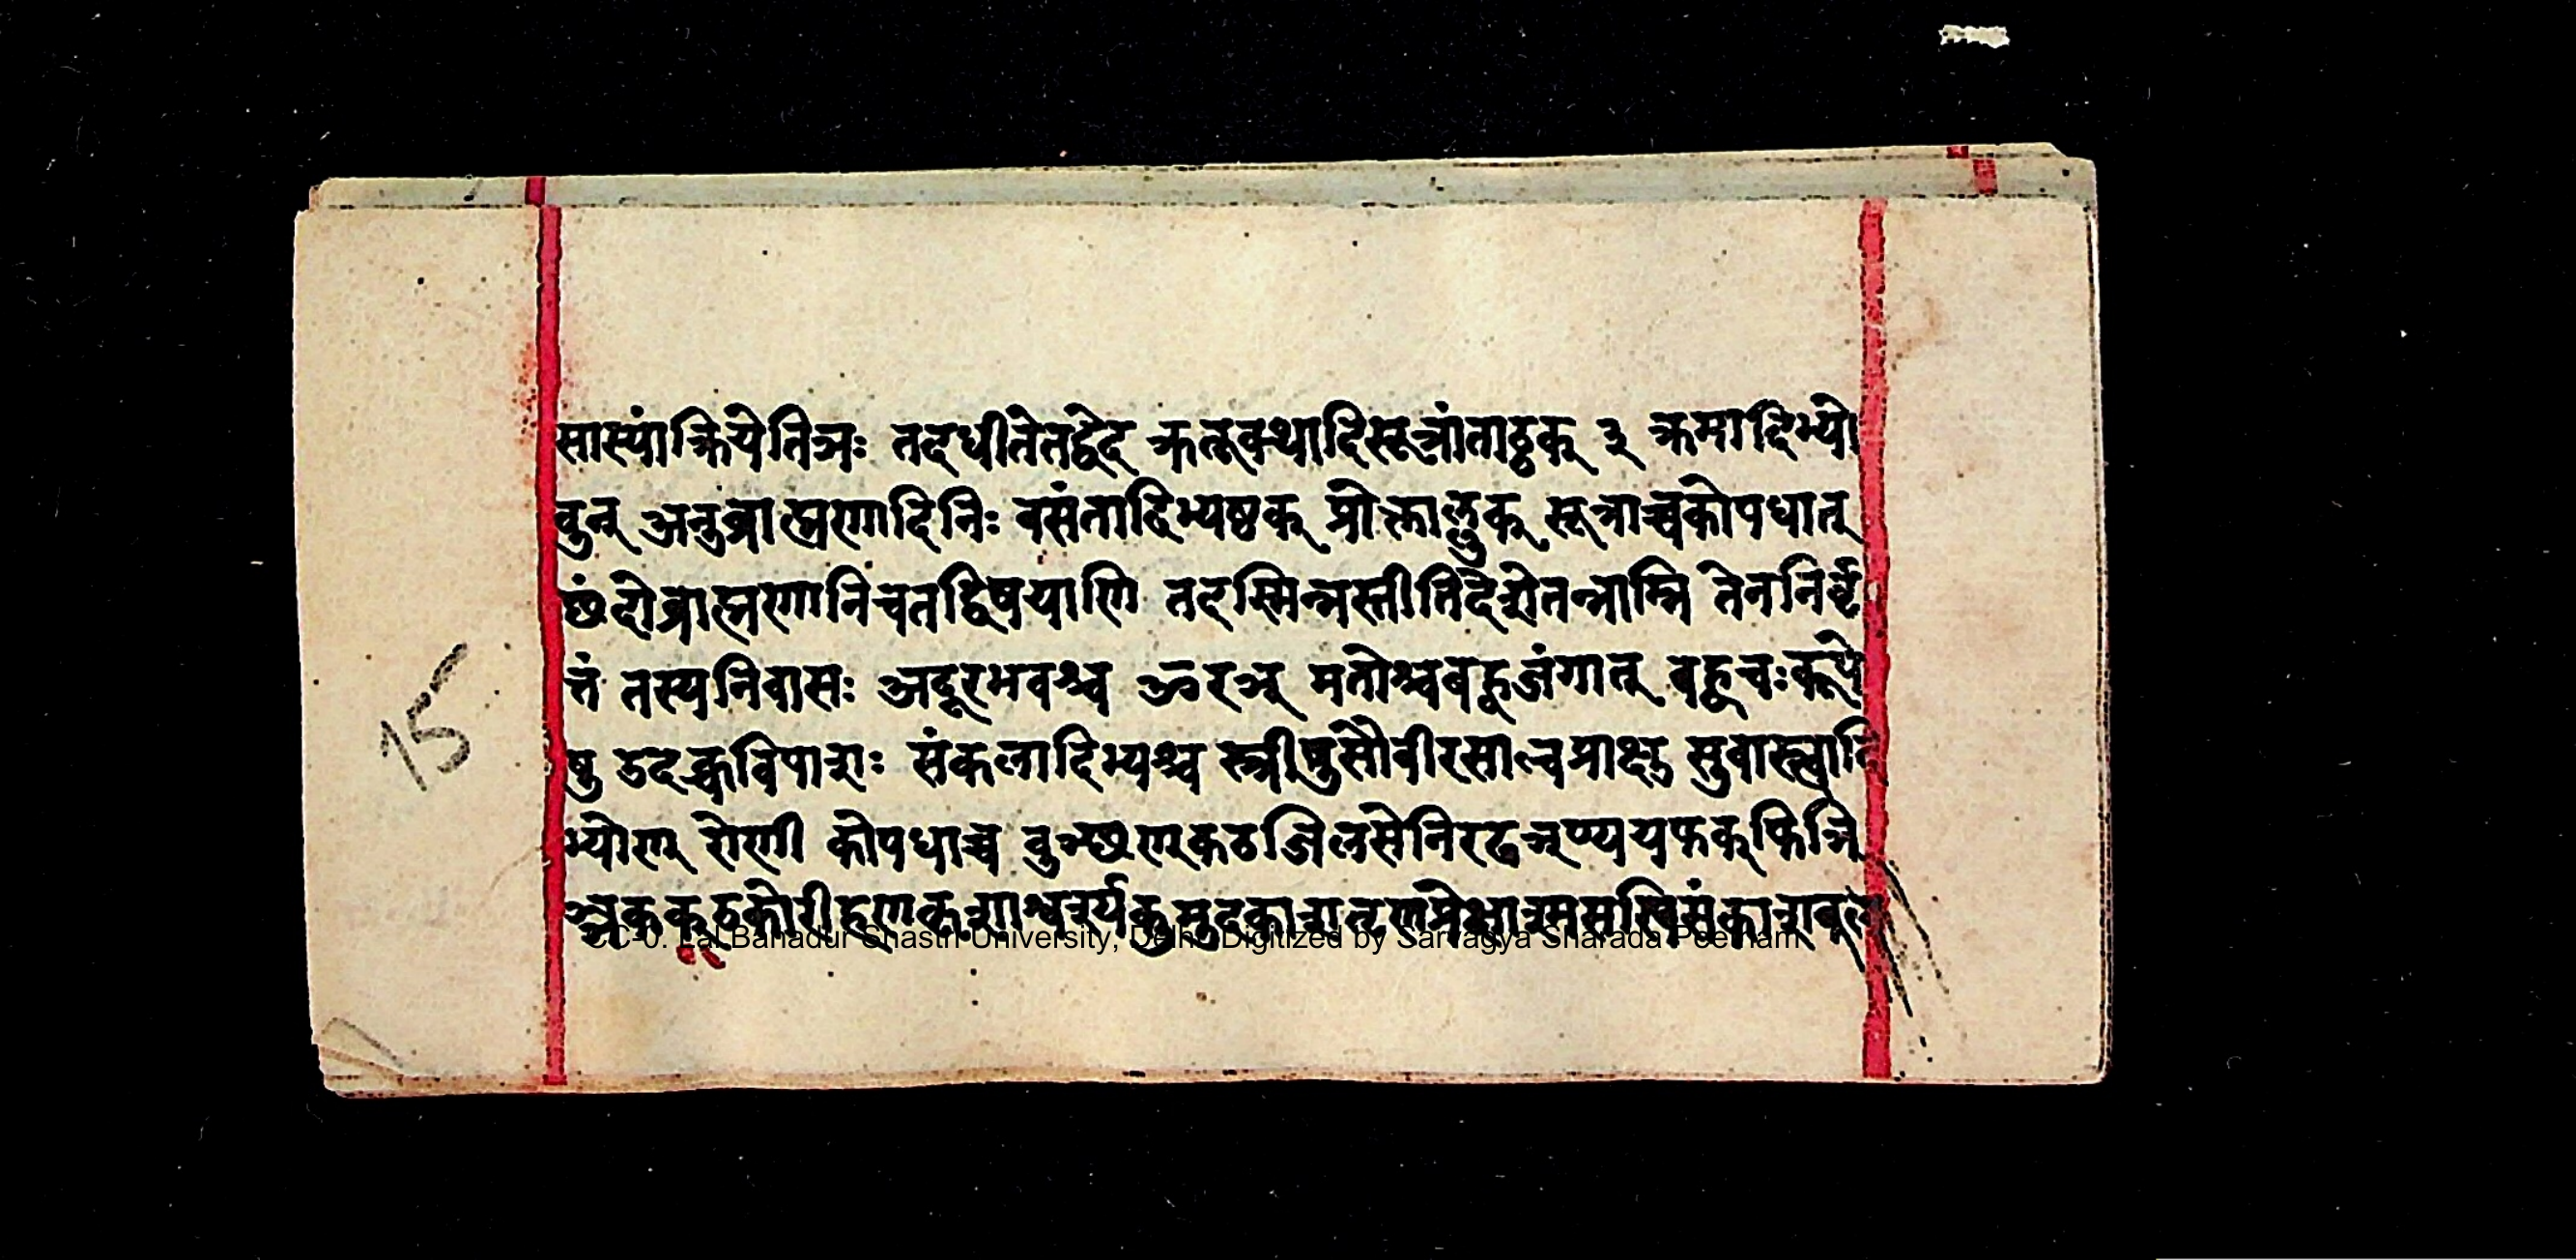 सास्यांक्रियेतिञः तदधीतेतद्वेद क्रतूक्थादिसूत्रांताट्ठक् ३ क्रमादिभ्यो
वुन् अनुब्राह्मणादिनिः वसंतादिभ्यष्ठक् प्रोक्ताल्लुक् सूत्राच्चकोपधात्
छंदोब्राह्मणानिचतद्विषयाणि तदस्मिन्नस्तीतिदेशेतन्नाम्नि तेननिर्वृ
त्तं तस्यनिवासः अदूरभवश्च ओरञ् मतोश्चबह्वजंगात् बह्वचःकूपे
षु उदक्चविपाशः संकलादिभ्यश्च स्त्रीषुसौवीरसाल्वप्राक्षु सुवास्त्वादि
भ्योण् रोणी कोपधाच्च वुञ्छण्कठजिलसेनिरढञ्ण्ययफक्फिञि
ञ्कक्ठकोरीहणकृशाश्वर्श्यकुमुदकाशतृणप्रेक्षाश्मसखिसंकाशबल
15
CC-0. Lal Bahadur Shastri University, Delhi. Digitized by Sarvagya Sharada Peetham